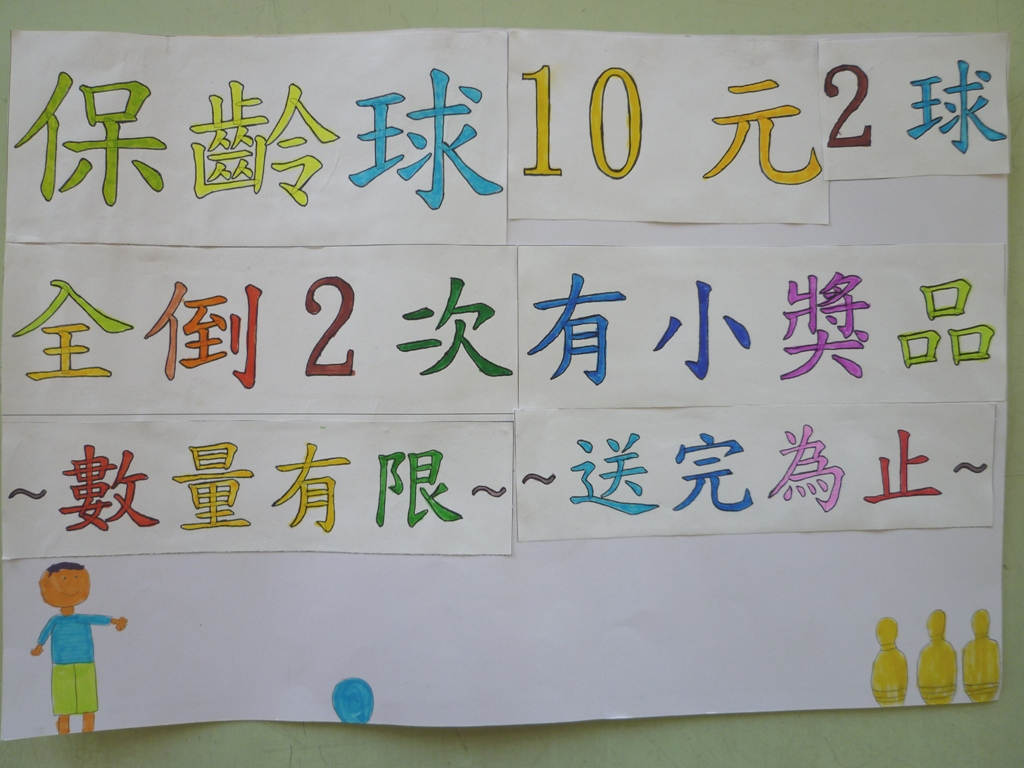 保齡球10元2球
全倒2次有小獎品
~數量有限~~送完為止~